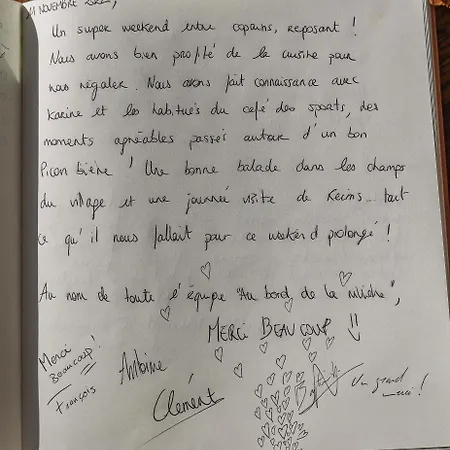 11 NOVEMBRE
Un super weekend entre copains, reposant !
Nous avons bien profité de la cuisine pour
nous régaler. Nous avons fait connaissance avec
Karine et les habitués du café des sports, des
moments agréables passés autour d'un bon
Picon bière ! Une bonne balade dans les champs
du village et une journée visite de Reims... tout
ce qu'il nous fallait pour ce weekend prolongé !
Au nom de toute l'équipe "Au bord de la",
MERCI BEAUCOUP !!
Merci
BEAUCOUP !
François
Antoine
Clément
Un grand
merci !